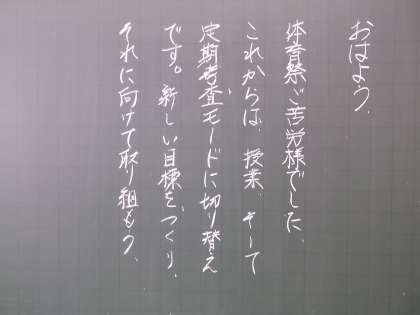 おはよう。
体育祭ご苦労様でした。
これからは、授業、そして
定期考査モードに切り替え
です。新しい目標をつくり、
それに向けて取り組もう。